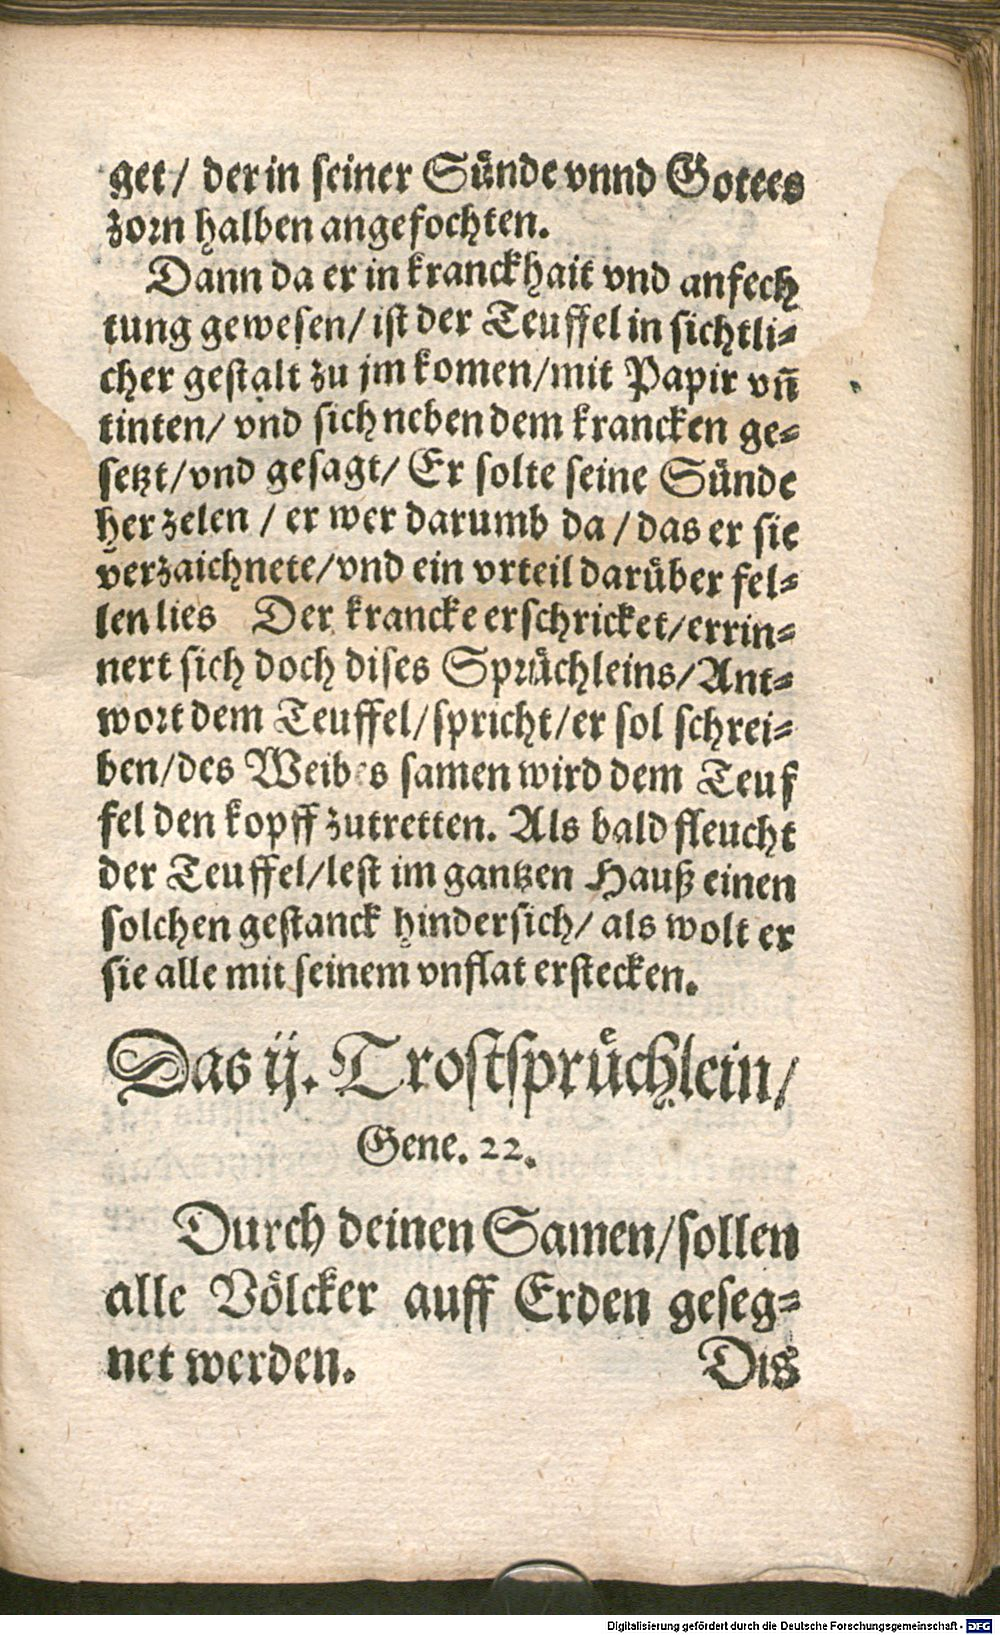 get/ der in seiner Sünde vnnd Gottes
zorn halben angefochten.
Dann da er in kranckhait vnd anfech
tung gewesen/ ist der Teuffel in sichtli⸗
cher gestalt zu jm komen/mit Papir vñ
tinten/ vnd sich neben dem krancken ge⸗
setzt/vnd gesagt/ Er solte seine Sünde
her zelen / er wer darumb da / das er sie
verzaichnete/vnd ein vrteil darüber fel⸗
len lies Der krancke erschricket/errin⸗
nert sich doch dises Sprüchleins/Ant⸗
wort dem Teuffel/spricht/er sol schrei⸗
ben/des Weibes samen wird dem Teuf
fel den kopff zutretten. Als bald fleucht
der Teuffel/lest im gantzen Hauß einen
solchen gestanck hindersich/ als wolt er
sie alle mit seinem vnflat erstecken.
Das ij. Trostsprüchlein/
Gene. 22.
Durch deinen Samen/sollen
alle Völcker auff Erden geseg⸗
net werden.
Dis
Digitalisierung gefördert durch die Deutsche Forschungsgemeinschaft - DFG